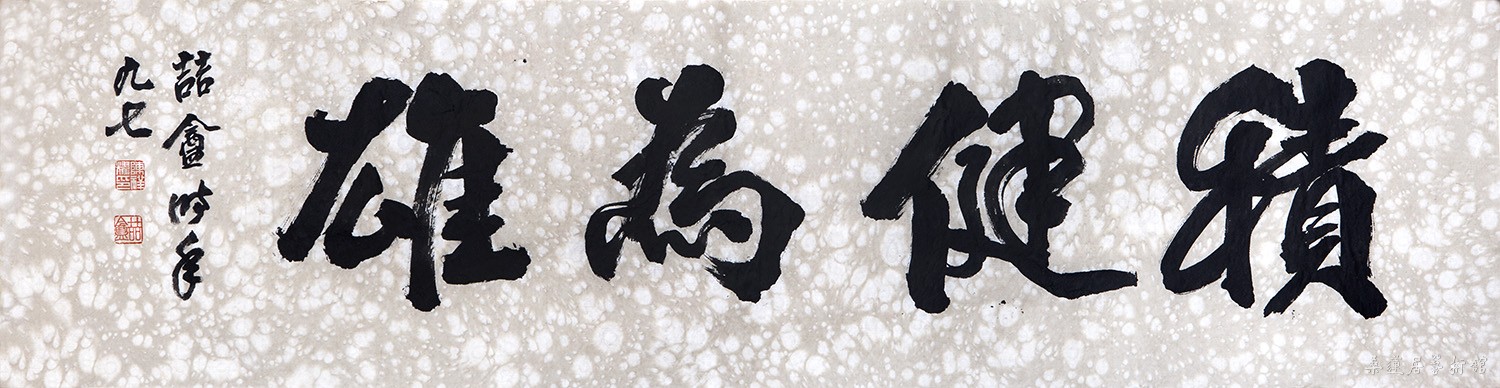 積健為雄
喆盦時年
九七